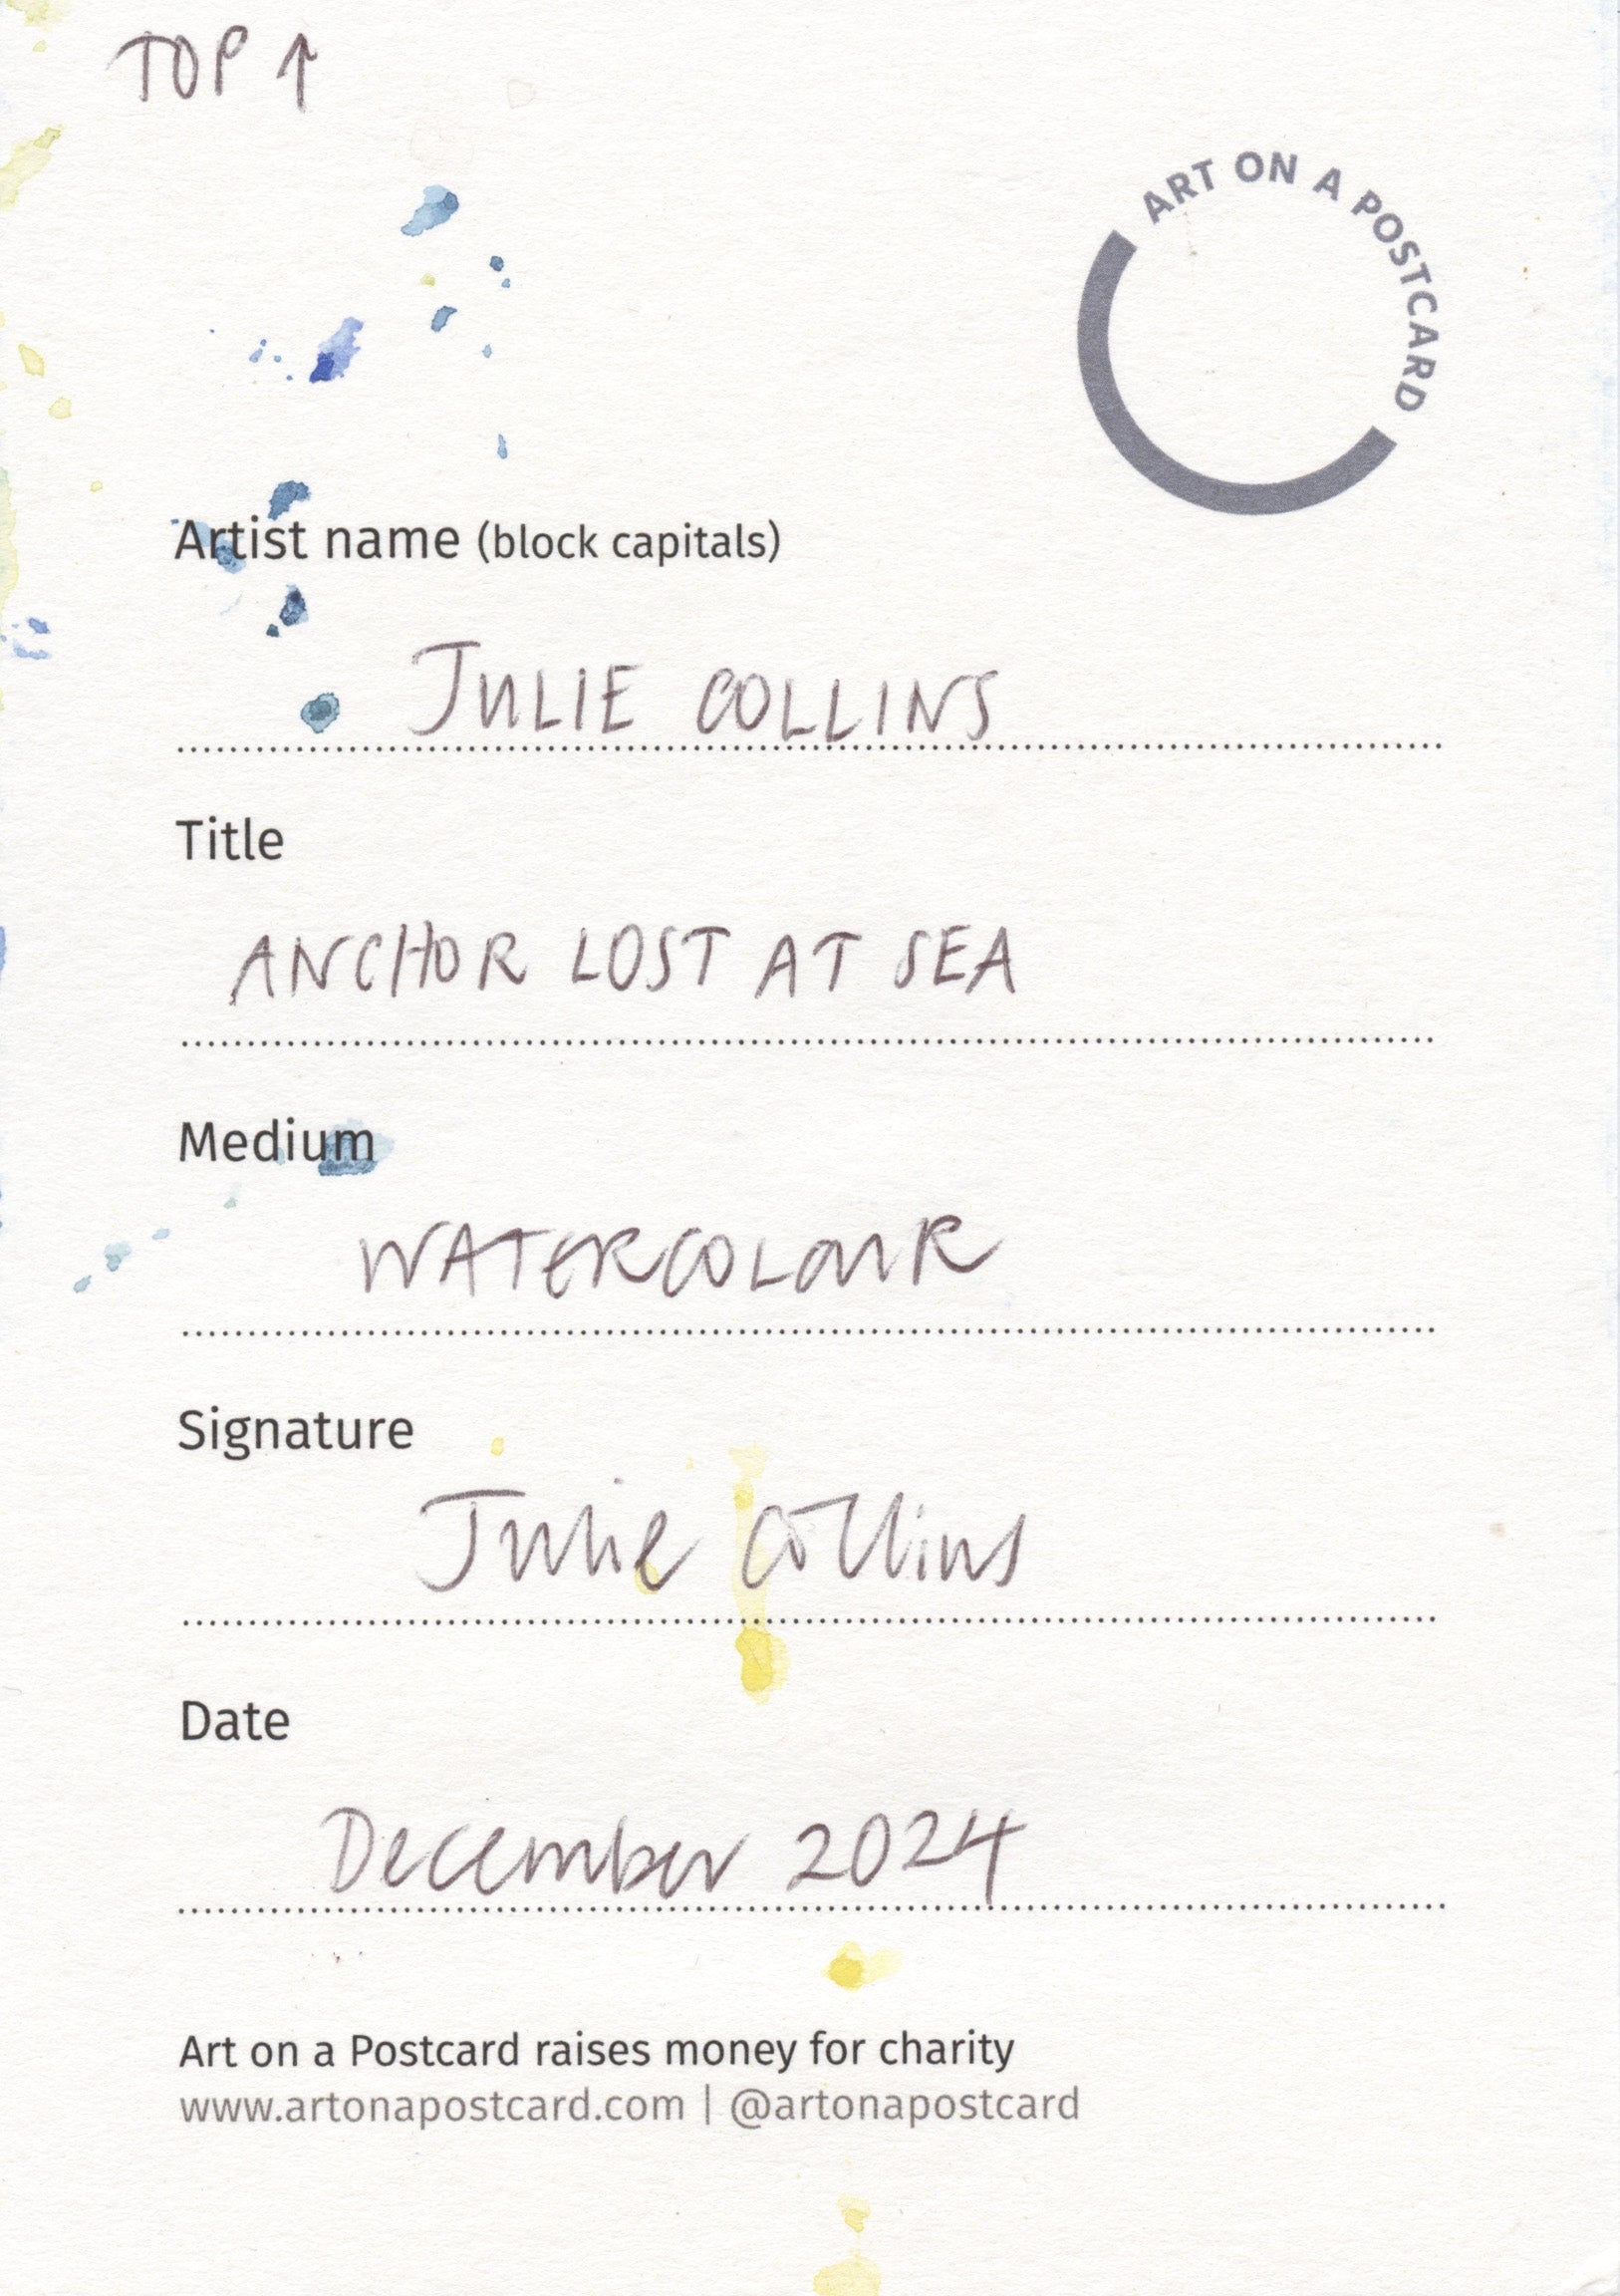 TOP ↑
ART ON A POSTCARD
Artist name (block capitals)
JULIE COLLINS
Title
ANCHOR LOST AT SEA
Medium
WATERCOLOUR
Signature
Julie Collins
Date
December 2024
Art on a Postcard raises money for charity
www.artonapostcard.com | @artonapostcard